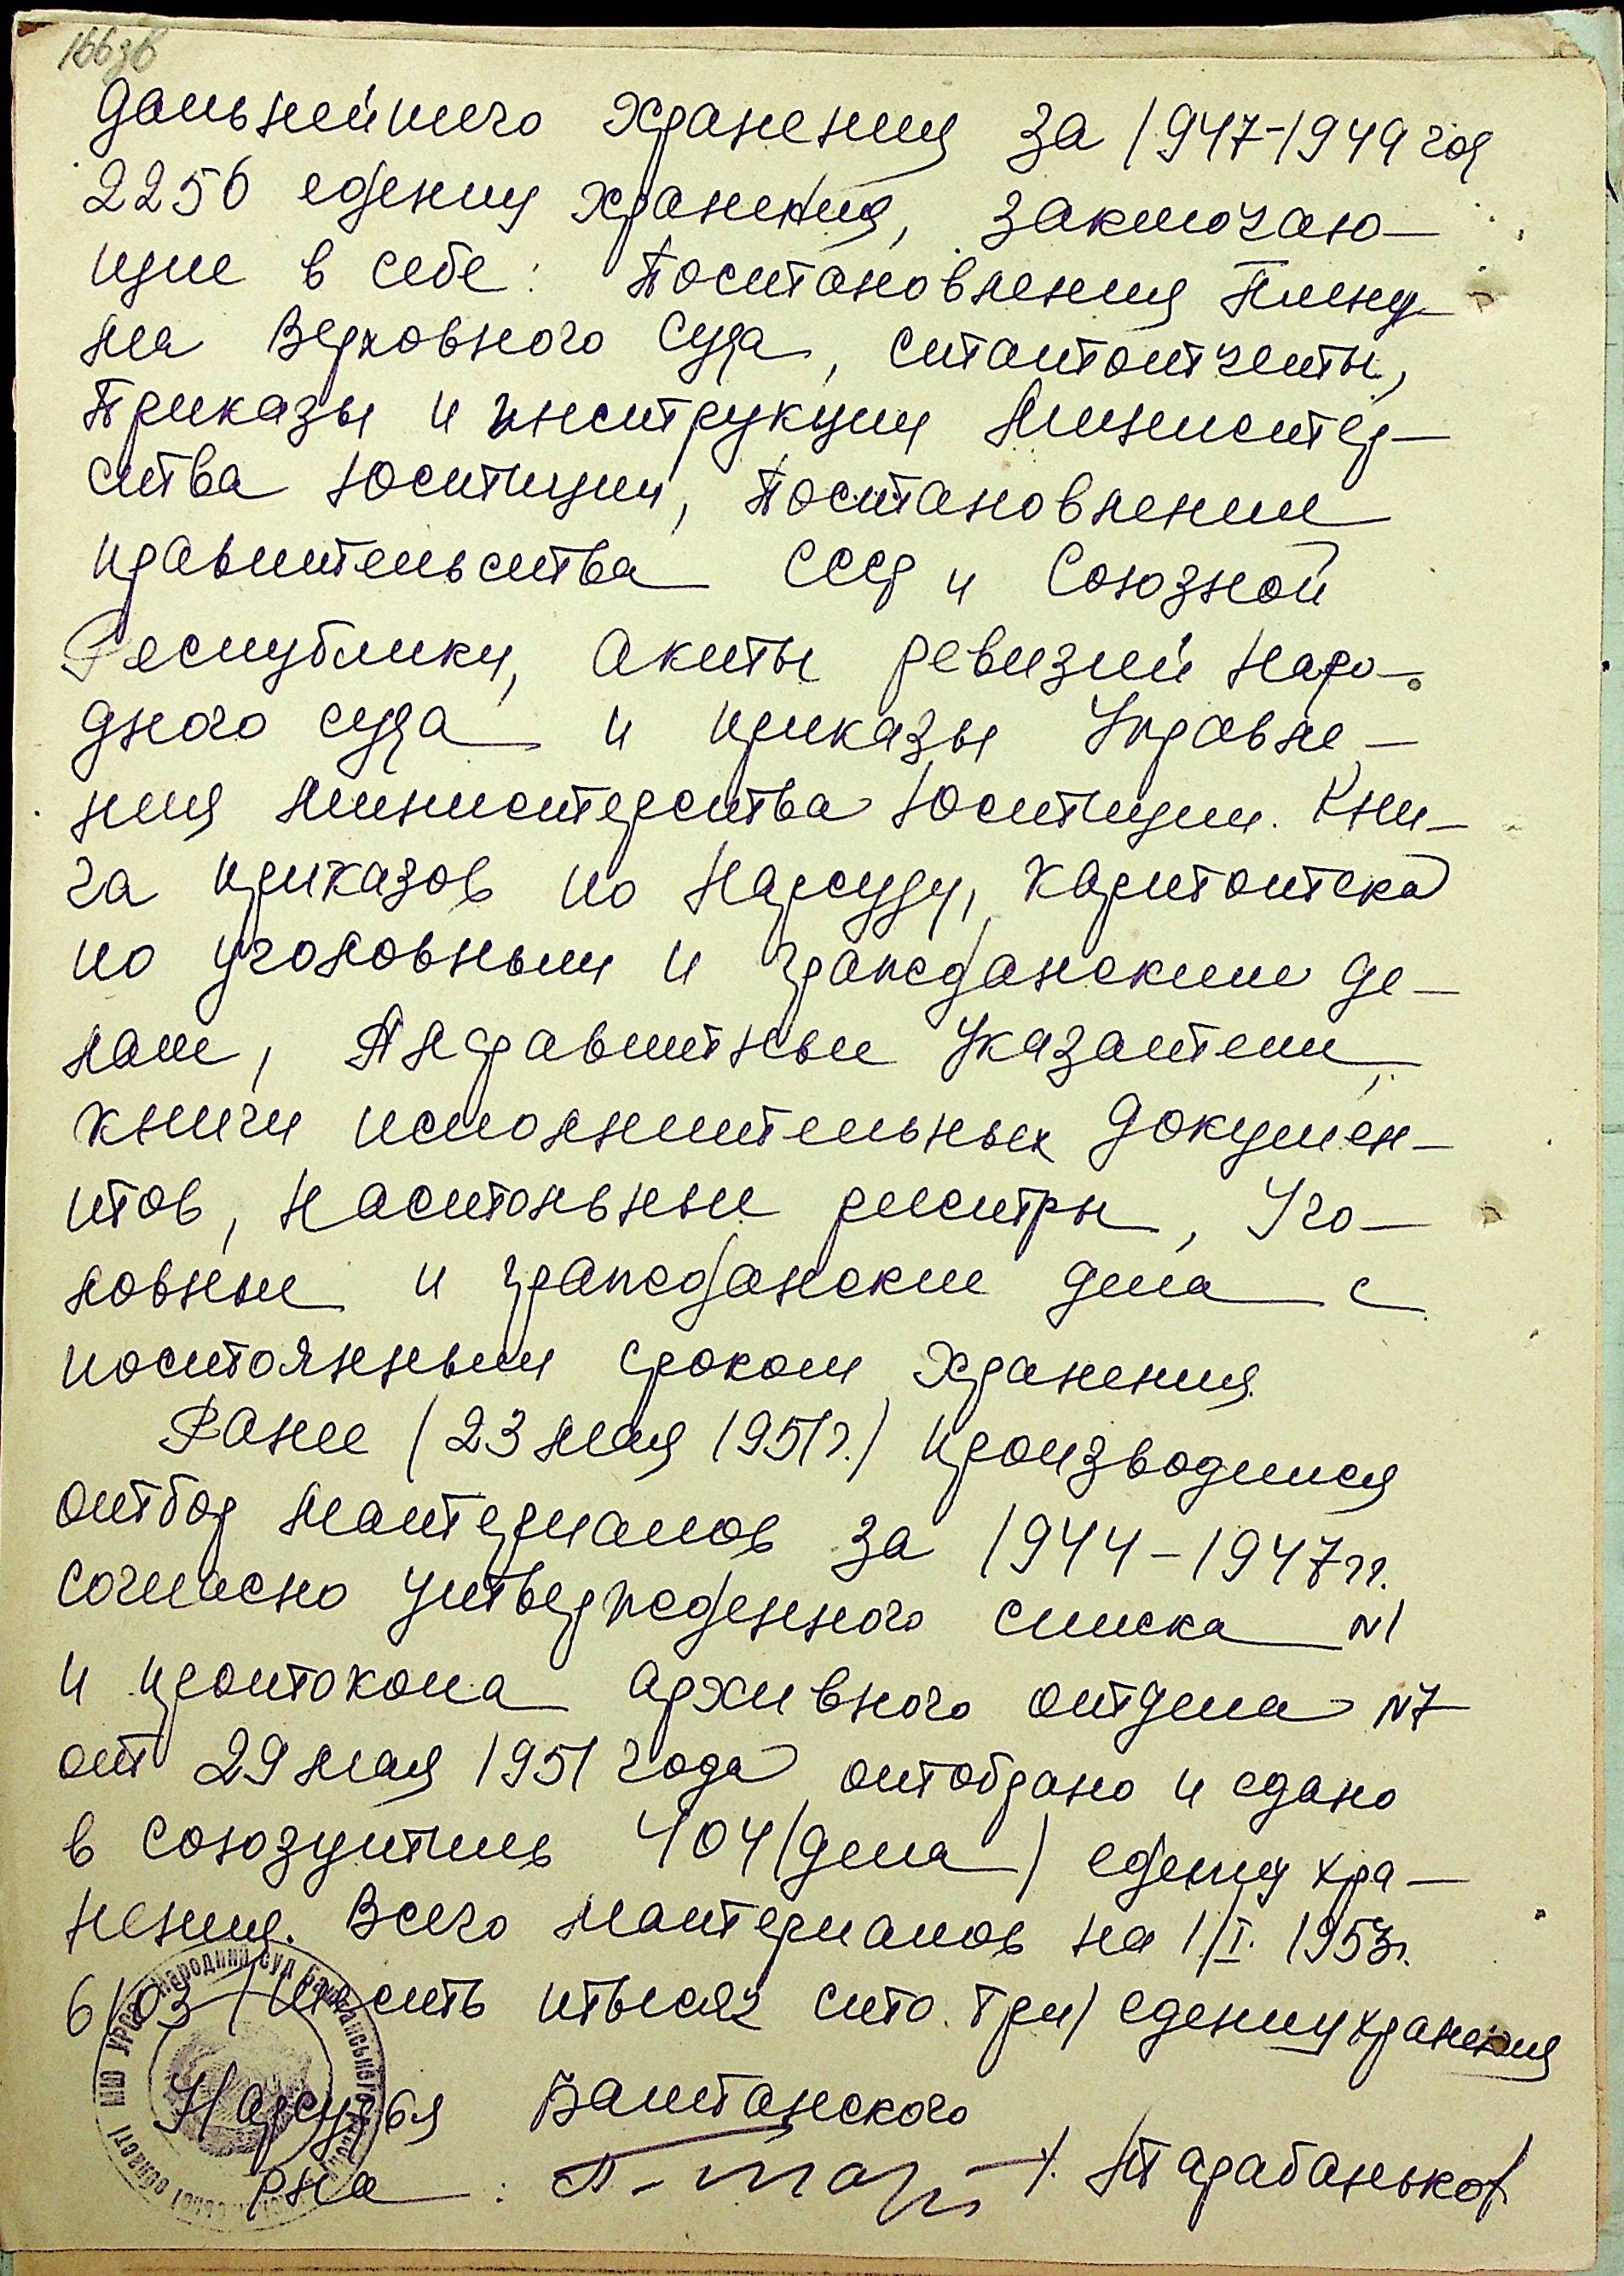 166зв
дальнейшего хранения за 1947-1949 год
2256 едениц хранения, заключаю-
щие в себе: Постановления Плену-
ма Верховного Суда, статотчеты,
Приказы и инструкции Министер-
ства Юстиции, Постановлении
правительства СССР и Союзной
Республики, акты ревизий Наро-
дного суда и приказы Управле-
ния министерства Юстиции. Кни-
га приказов по Нарсуду, Картотека
по уголовным и гражданским де-
лам, Алфавитные указатели,
книги исполнительных докумен-
тов, настольные реестры, Уго-
ловные и гражданские дела с
постоянным сроком хранения.
Ранее (23 мая 1951г.) производился
отбор материалов за 1944-1947гг.
согласно утвержденного списка N1
и протокола архивного отдела N7
от 29 мая 1951 года отобрано и сдано
в союзутиль 404 (дела) едениц хра-
нения. Всего материалов на 1/I. 1953г.
6103 (шесть тысяч сто три) едениц хранения
Нарсудья Баштанского
р-на: /Тарабанько/
МЮ УРСР Народний суд Баштанського
області